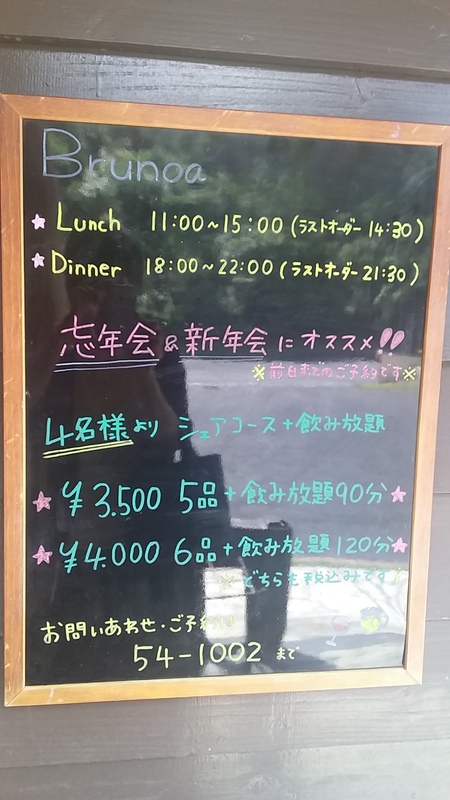 Brunoa
★ Lunch 11:00~15:00 (ラストオーダー 14:30)
★ Dinner 18:00~22:00 (ラストオーダー 21:30)
忘年会 & 新年会 に オススメ!!
※前日までのご予約です※
4名様より シェアコース+飲み放題
★ ¥3.500 5品+飲み放題90分★
★ ¥4.000 6品+飲み放題120分★
※どちらも税込みです
お問いあわせ・ご予約は
54-1002 まで